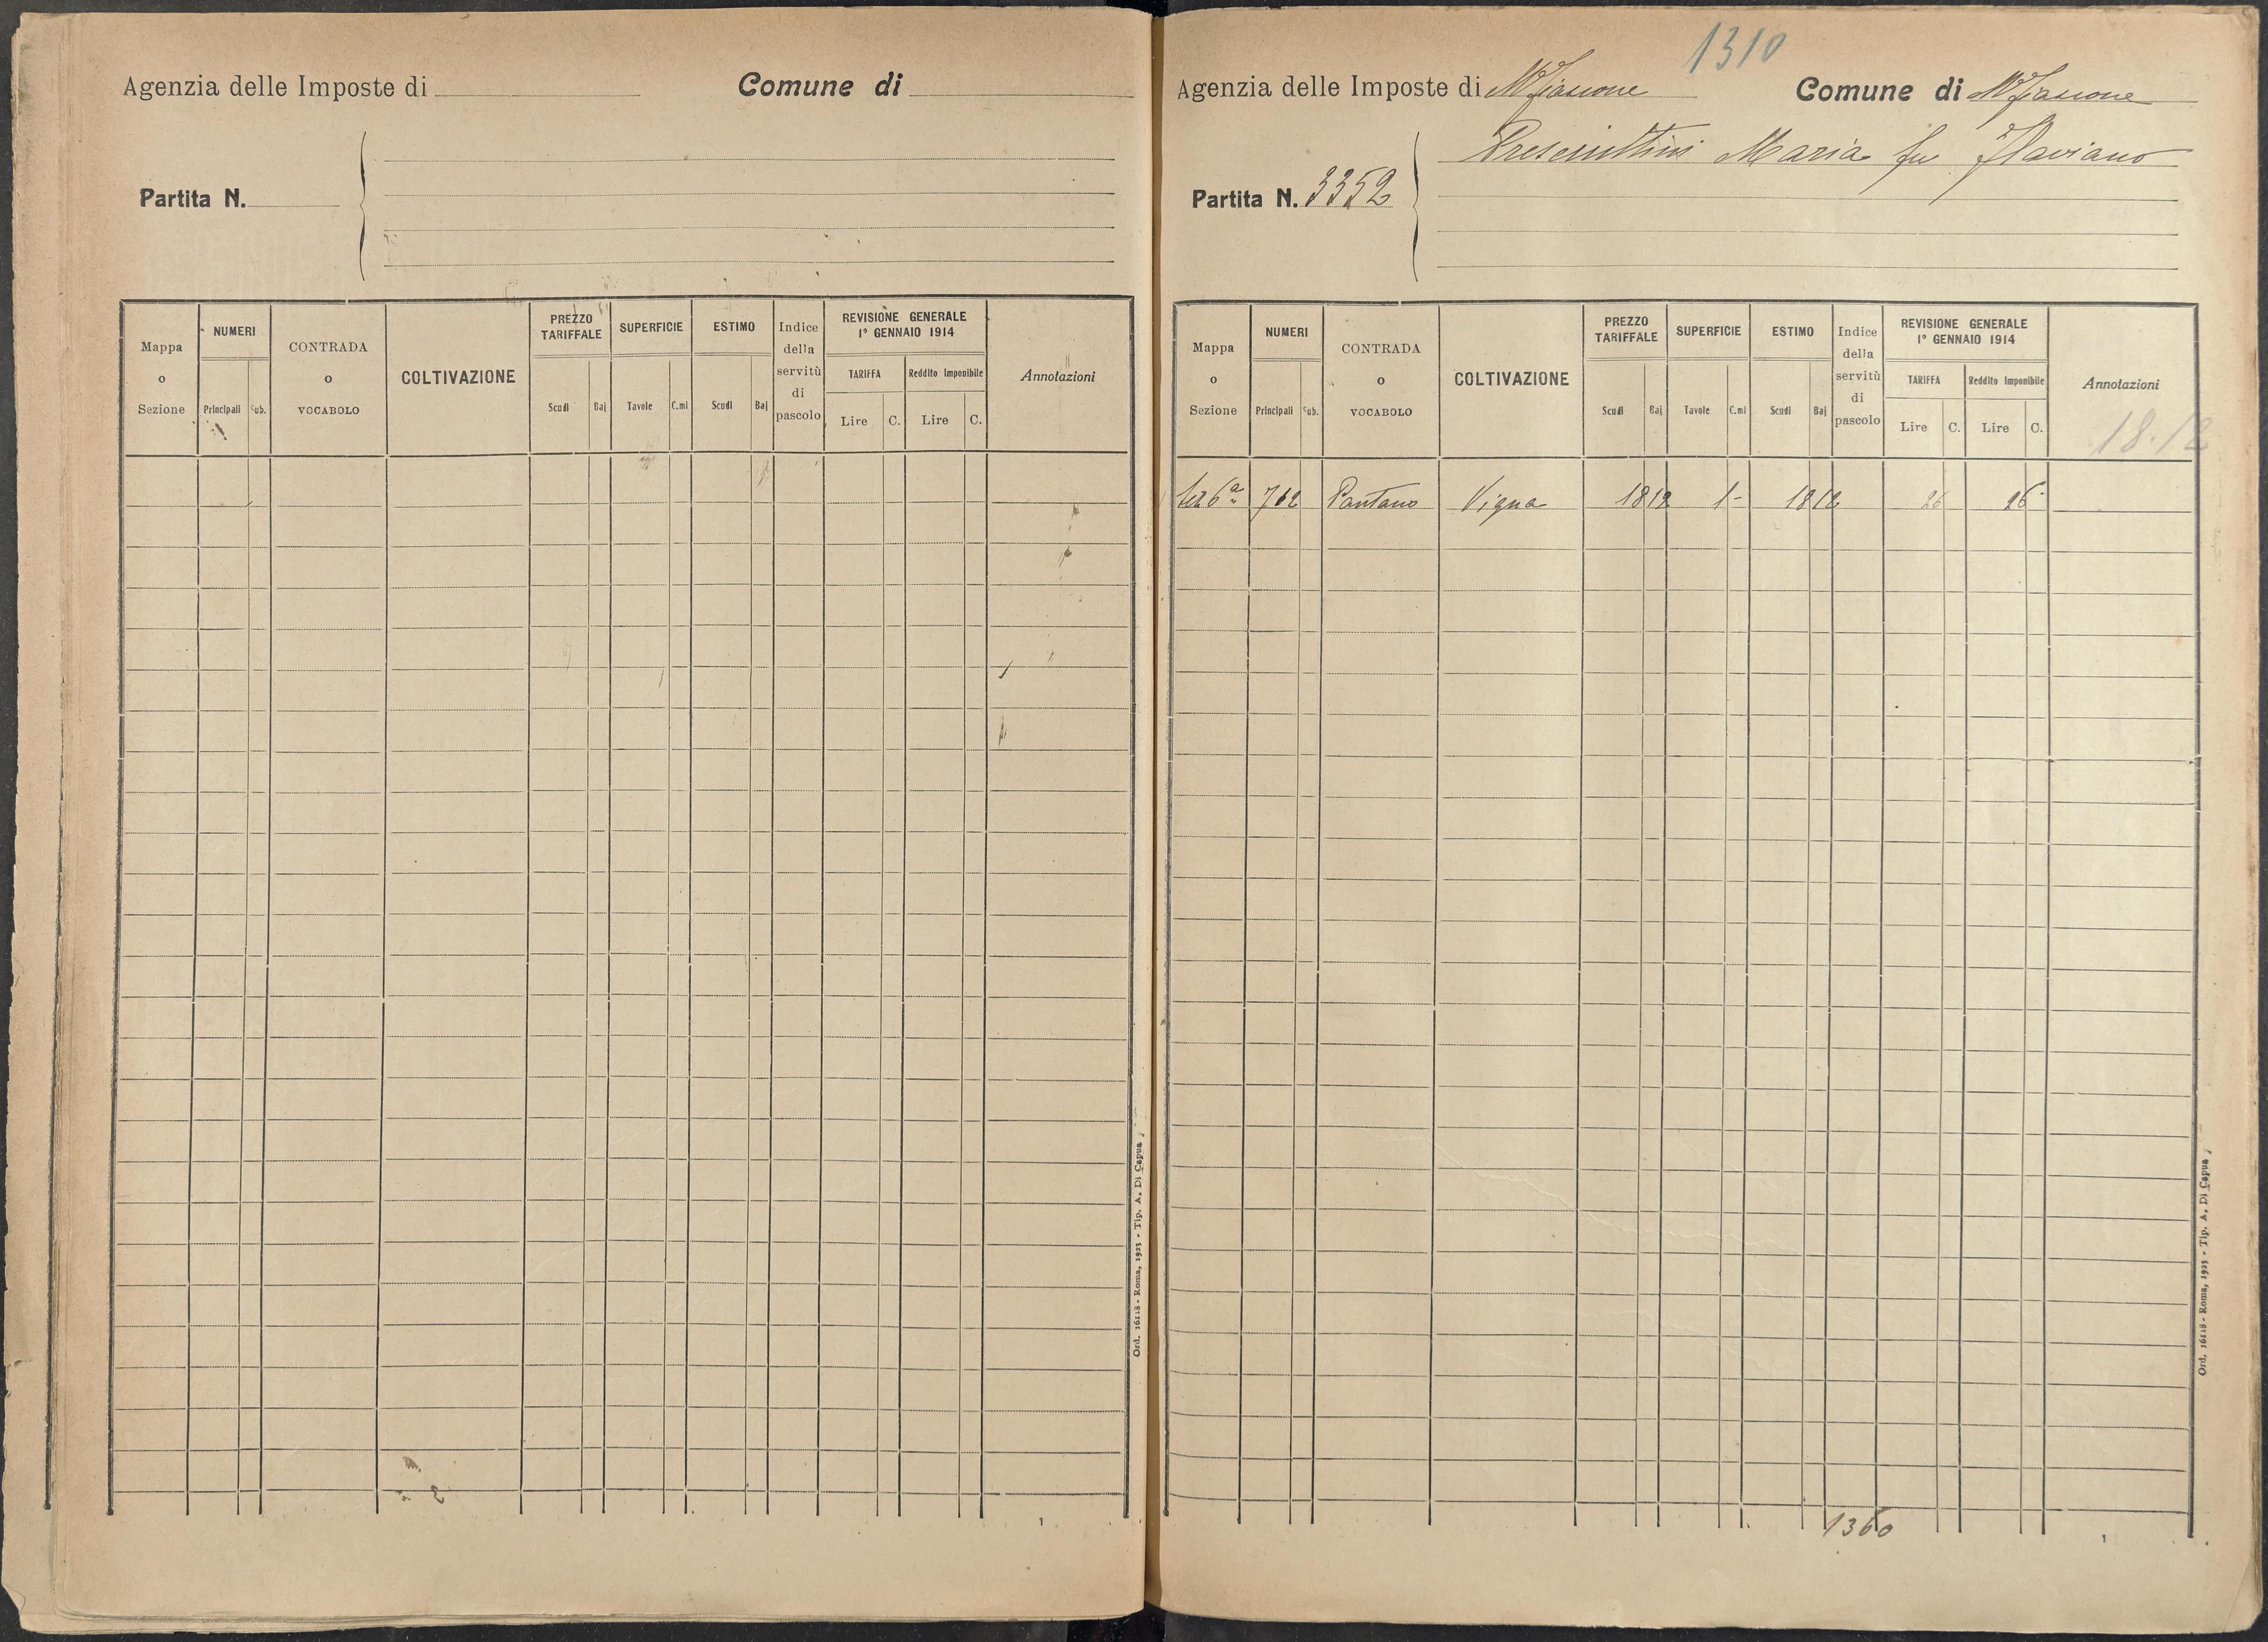 Agenzia delle Imposte di
Comune di
Partita N.
Mappa o Sezione
NUMERI
Principali Sub.
CONTRADA o VOCABOLO
COLTIVAZIONE
PREZZO TARIFFALE
Scudi Baj
SUPERFICIE
Tavole C.mi
ESTIMO
Scudi Baj
Indice della servitù di pascolo
REVISIONE GENERALE 1° GENNAIO 1914
TARIFFA Reddito Imponibile
Lire C. Lire C.
Annotazioni
Ord. 16118 - Roma, 1923 - Tip. A. Di Capua
1310
Agenzia delle Imposte di Mfiascone
Comune di Mfiascone
Maria fu Flaviano
Partita N. 3352
Mappa o Sezione
NUMERI
Principali Sub.
CONTRADA o VOCABOLO
COLTIVAZIONE
PREZZO TARIFFALE
Scudi Baj
SUPERFICIE
Tavole C.mi
ESTIMO
Scudi Baj
Indice della servitù di pascolo
REVISIONE GENERALE 1° GENNAIO 1914
TARIFFA Reddito Imponibile
Lire C. Lire C.
Annotazioni
18.12
Sez 6ª 762 Pantano Vigna 18 12 1 - 18 12 26 26
1360
Ord. 16118 - Roma, 1923 - Tip. A. Di Capua